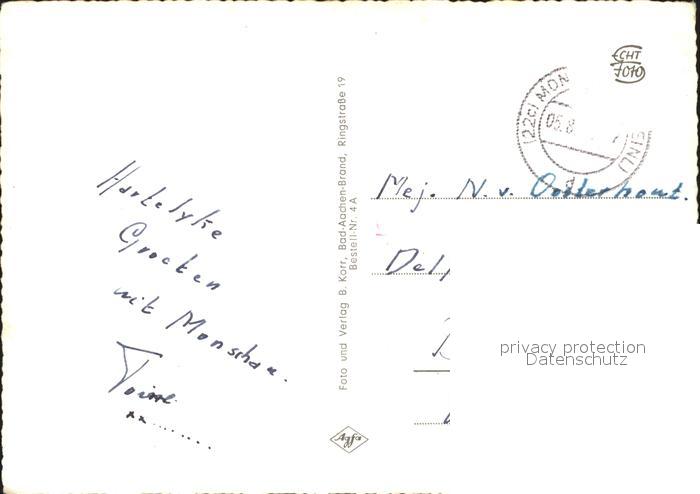 Hartelyke
Groeten
uit Monschau.
Foto und Verlag B. Korr, Bad-Aachen-Brand, Ringstraße 19
Bestell-Nr. 4 A
Agfa
ECHT
FOTO
(22c) MON
05.8
Mej. N. v. Oosterhout.
privacy protection
Datenschutz